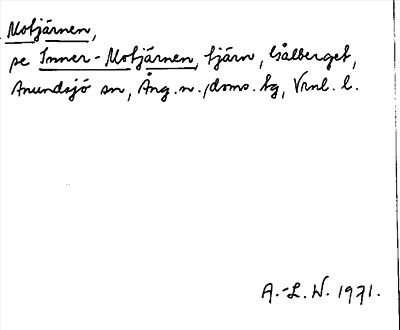 Motjärnen,
se Inner-Motjärnen, tjärn, Gålberget,
Anundsjö sn, Ång. n. doms. tg, Vrnl. l.
A.-L. W. 1971.